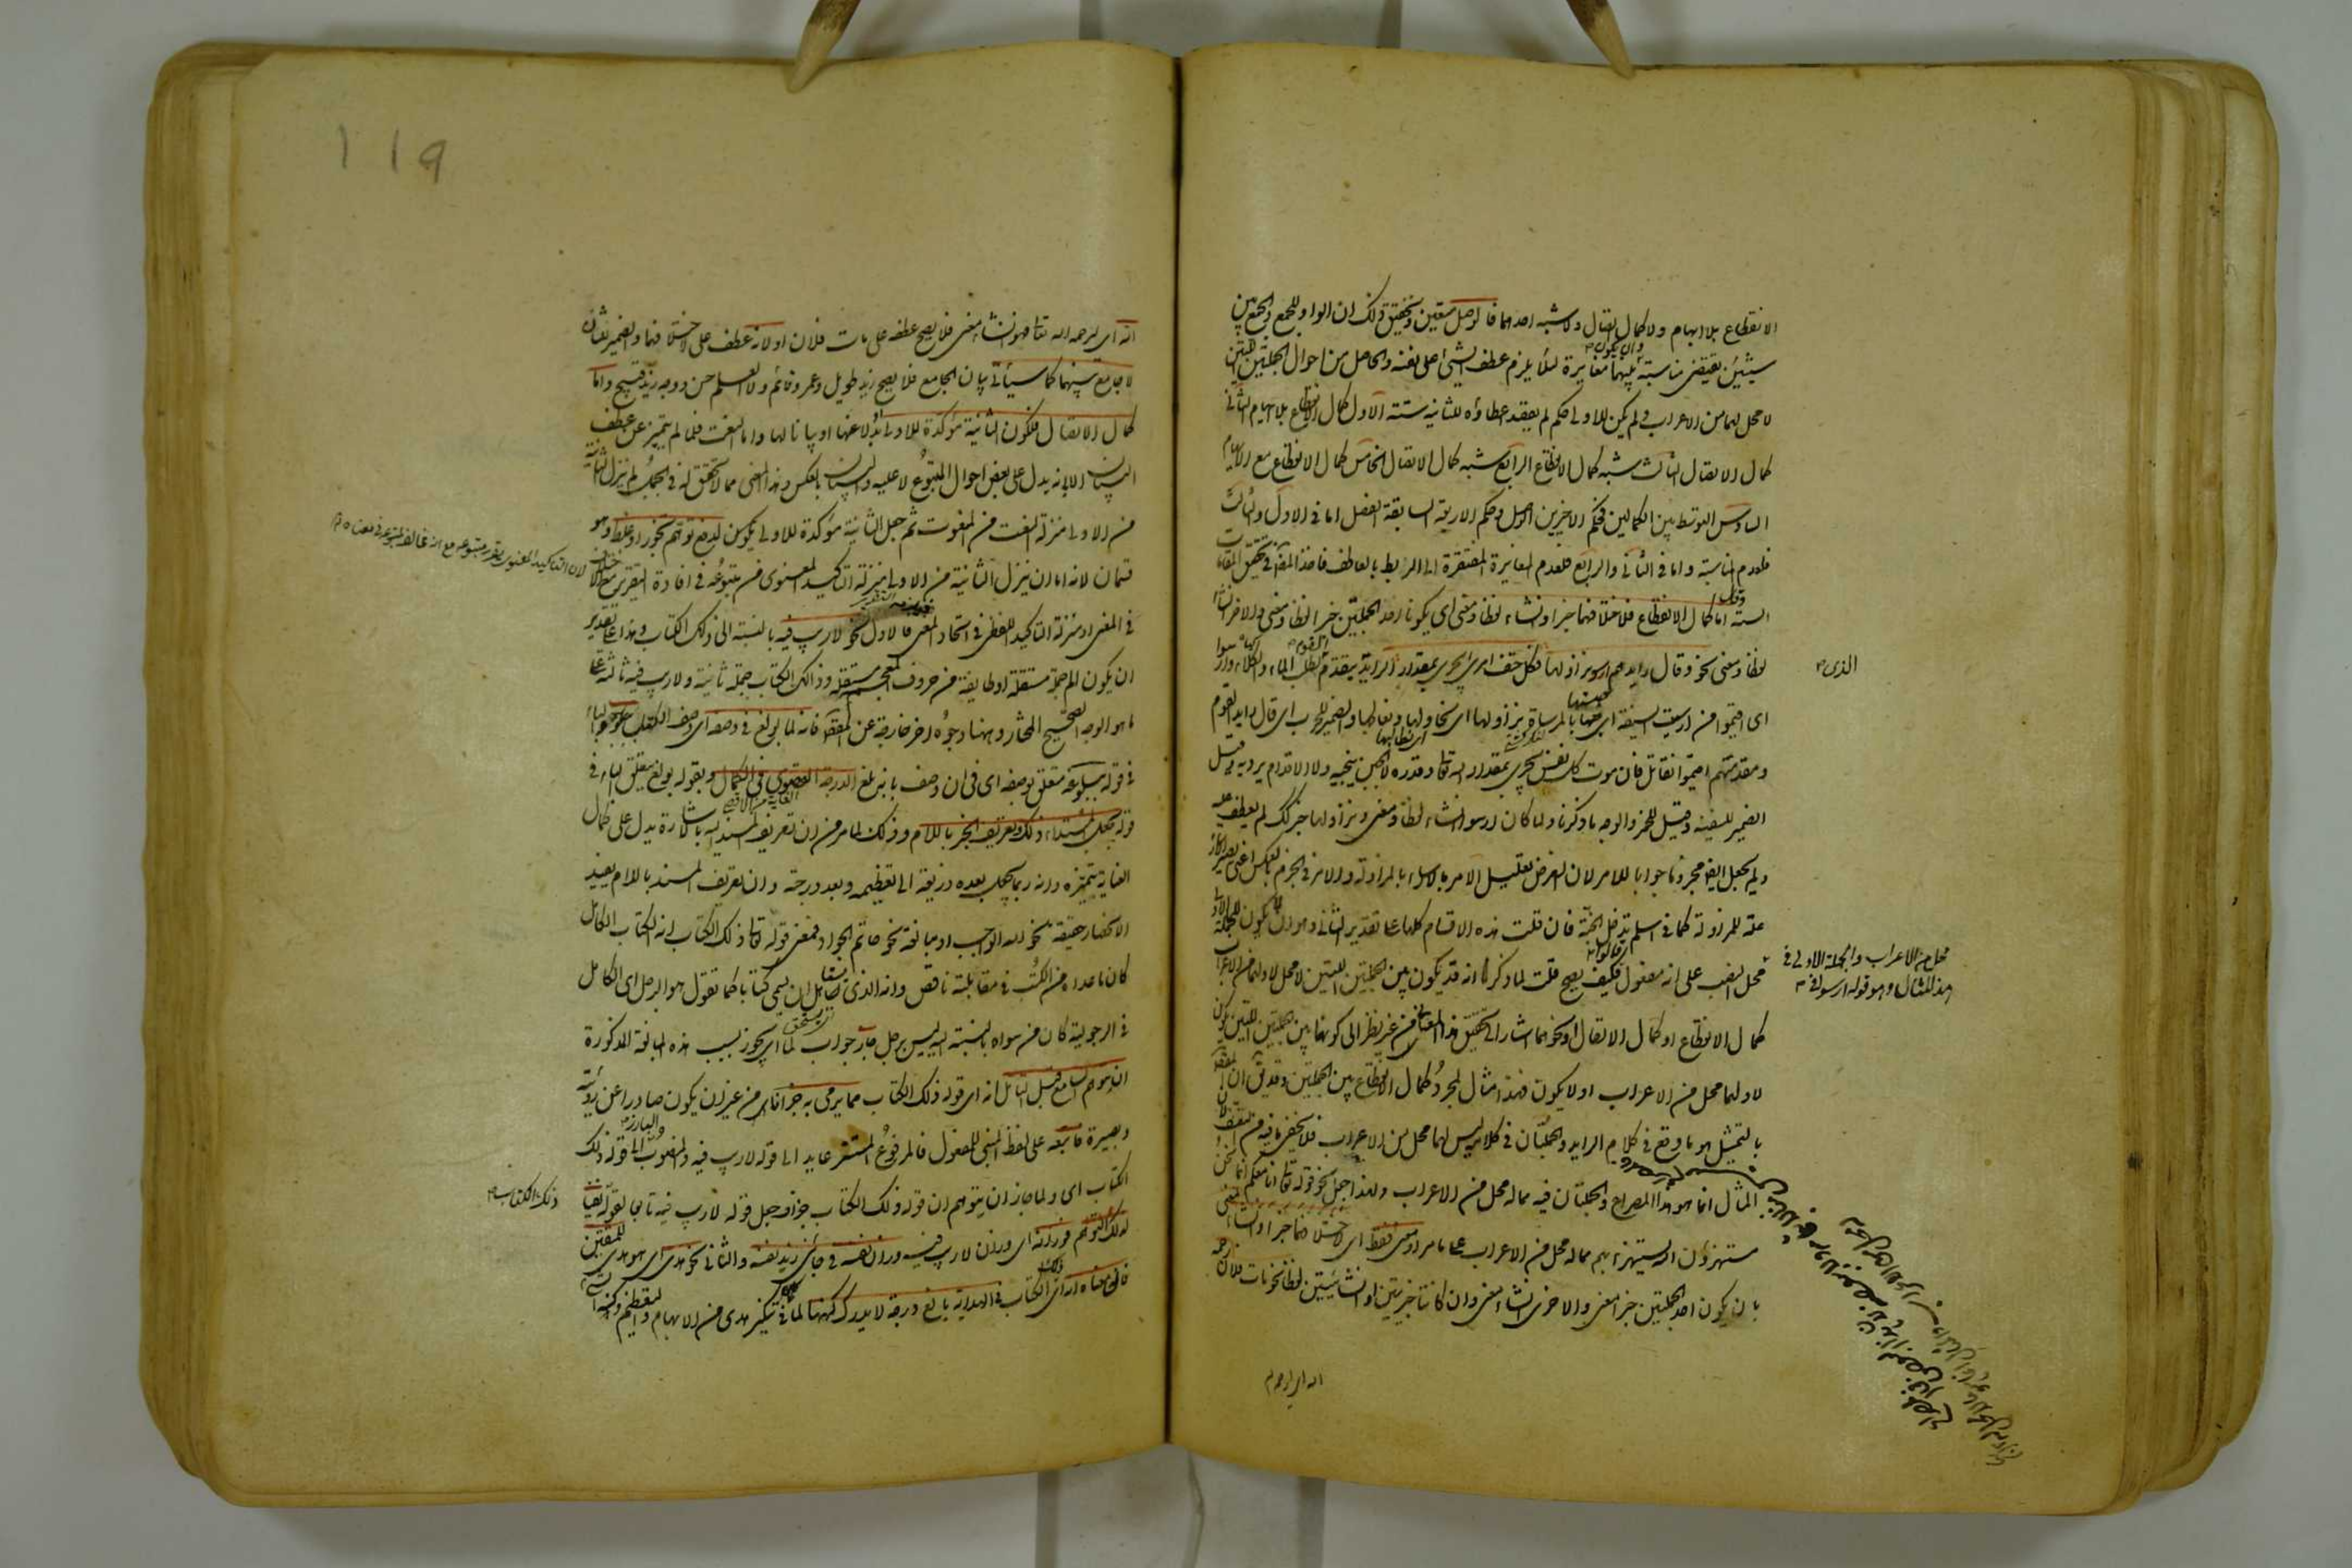 الانقطاع بلا ايهام ولا كمال اتصال ولا شبه احدهما فالوصل متعين وتحقيق ذلك ان الواو للجمع والجمع بين
شيئين يقتضى مناسبة بينهما وان يكون مغايرة لئلا يلزم عطف الشئ على نفسه والحاصل من احوال الجملتين اللتين
لا محل لهما من الاعراب ولم يكن للاولى حكم لم يقصد اعطاؤه للثانية ستة الاول كمال الانقطاع بلا ايهام الثانى
كمال الاتصال الثالث شبه كمال الانقطاع الرابع شبه كمال الاتصال الخامس كمال الانقطاع مع الايهام
السادس التوسط بين الكمالين فحكم الاخيرين الوصل وحكم الاربعة السابقة الفصل اما فى الاول والثالث
فلعدم المناسبة واما فى الثانى والرابع فلعدم المغايرة المفتقرة الى الربط بالعاطف فاخذ المص فى تحقيق المقامات
الستة وقال اما كمال الانقطاع فلاختلافهما خبرا وانشاء لفظا ومعنى اى يكون احد الجملتين خبرا لفظا ومعنى والاخرى انشاء
لفظا ومعنى نحو وقال رايدهم ارسوا نزاولها فكل حتف امرئ يجرى بمقدار الرايد الذى يتقدم القوم لطلب الماء والكلاء وارسوا
اى اقيموا من ارسيت السفينة اى حبستها بالمرساة نزاولها اى نحاولها ونعالجها والضمير للحرب اى قال رايد القوم
ومقدمتهم اقيموا نقاتل فان موت كل نفس يجرى بمقدار الله تعالى وقدره لا الجبن ينجيه ولا الاقدام يرديه وقيل
الضمير للسفينة وقيل للخمر والوجه ما ذكرنا ولما كان ارسوا انشاء لفظا ومعنى ونزاولها خبر كذلك لم يعطف عليه
ولم يجعل ايضا مجزوما جوابا للامر لان الغرض تعليل الامر بالارساء بالمزاولة والامر فى الجزم بالعكس اعنى يصير الارساء
علة للمزاولة كما فى اسلم تدخل الجنة فان قلت هذه الاقسام كلها على تقدير الثانى وهو ان لا يكون للجملة الاولى
محل من الاعراب والجملة الاولى فى
هذا المثال وهو قوله ارسوا فى
محل النصب على انه مفعول قال فكيف يصح قلت لما ذكر انه قد يكون بين الجملتين اللتين لا محل لاولهما من الاعراب
كمال الانقطاع او كمال الاتصال او نحوهما اشار الى تحقيق هذه المعانى من غير نظر الى كونها بين جملتين اللتين يكون
لاولهما محل من الاعراب او لا يكون فهذا مثال لمجرد كمال الانقطاع بين الجملتين وقد يق ان المقصود
بالتمثيل هو ما وقع فى كلام الرايد والجملتان فى كلامه ليس لهما محل من الاعراب فلا يخفى ما فيه من التعسف لان
المثال انما هو هذا المصراع والجملتان فيه مما له محل من الاعراب ولهذا جعل نحو قوله تعالى انا معكم انما نحن
مستهزؤن الله يستهزئ بهم مما له محل من الاعراب على ما مر او معنى فقط اى لاختلافهما خبرا وانشاء معنى
بان يكون احد الجملتين خبرا معنى والاخرى انشاء معنى وان كانتا خبريتين او انشائيتين لفظا نحو مات فلان رحمه
الله اى ليرحمه
119
الله اى ليرحمه الله تعالى فهو انشاء معنى فلا يصح عطفه على مات فلان او لانه عطف على لاختلافهما والضمير للشان
لا جامع بينهما كما سيأتى بيان الجامع فلا يصح زيد طويل وعمرو نائم ولا العلم حسن ووجه زيد قبيح واما
كمال الاتصال فلكون الثانية مؤكدة للاولى او بدلا عنها او بيانا لها واما النعت فلما لم يتميز عن عطف
البيان الا بانه يدل على بعض احوال المتبوع لا عليه والبيان بالعكس وهذا المعنى مما لا تحقق له فى الجمل لم ينزل الثانية
من الاولى منزلة النعت من المنعوت ثم جعل الثانية مؤكدة للاولى يكون لدفع توهم تجوز او غلط وهو
قسمان لانه اما ان ينزل الثانية من الاولى منزلة التاكيد المعنوى من متبوعه فى افادة التقرير مع الاختلاف
فى المعنى او منزلة التاكيد اللفظى فى اتحاد المعنى فالاول نحو لا ريب فيه بالنسبة الى ذلك الكتاب وهذا على تقدير
ان يكون الم جملة مستقلة او طايفة من حروف المعجم مستقلة وذلك الكتاب جملة ثانية ولا ريب فيه ثالثة على
ما هو الوجه الصحيح المختار وههنا وجوه اخر خارجة عن المقصود فانه لما بولغ فى وصفه اى وصف الكتاب ببلوغه الباء
فى قوله ببلوغه متعلق بوصفه اى فى ان وصف بانه بلغ الدرجة القصوى فى الكمال وبقوله بولغ يتعلق الباء فى
قوله بجعل المبتداء ذلك وتعريف الخبر باللام وذلك لما مر من ان تعريف المسند اليه بالاشارة يدل على كمال
العناية بتميزه وانه ربما يجعل بعده ذريعة الى تعظيمه وبعد درجته وان تعريف المسند باللام يفيد
الانحصار حقيقة نحو الله الواجب او مبالغة نحو حاتم الجواد فمعنى قوله تعالى ذلك الكتاب انه الكتاب الكامل
كان ما عداه من الكتب فى مقابلته ناقص وانه الذى يستأهل ان يسمى كتابا كما تقول هو الرجل اى الكامل
فى الرجولية كان من سواه بالنسبة اليه ليس برجل جاز جواب لما اى يجوز بسبب هذه المبالغة المذكورة
ان يتوهم السامع قبل التامل انه اى قوله ذلك الكتاب مما يرمى به جزافا اى من غير ان يكون صادرا عن روية
وبصيرة فاتبعه على لفظ المبنى للمفعول فالمرفوع المستتر عايد الى قوله لا ريب فيه والمنصوب البارز الى قوله ذلك
الكتاب اى ولما جاز ان يتوهم ان قوله ذلك الكتاب جزاف جعل قوله لا ريب فيه تابعا لقوله ذلك الكتاب نفيا
لذلك التوهم فوزانه اى وزان لا ريب فيه وزان نفسه فى جاءنى زيد نفسه والثانى نحو هدى اى هو هدى للمتقين
فان معناه انه اى الكتاب فى الهداية بالغ درجة لا يدرك كنهها لما فى تنكير هدى من الابهام والتعظيم وكنه الشئ